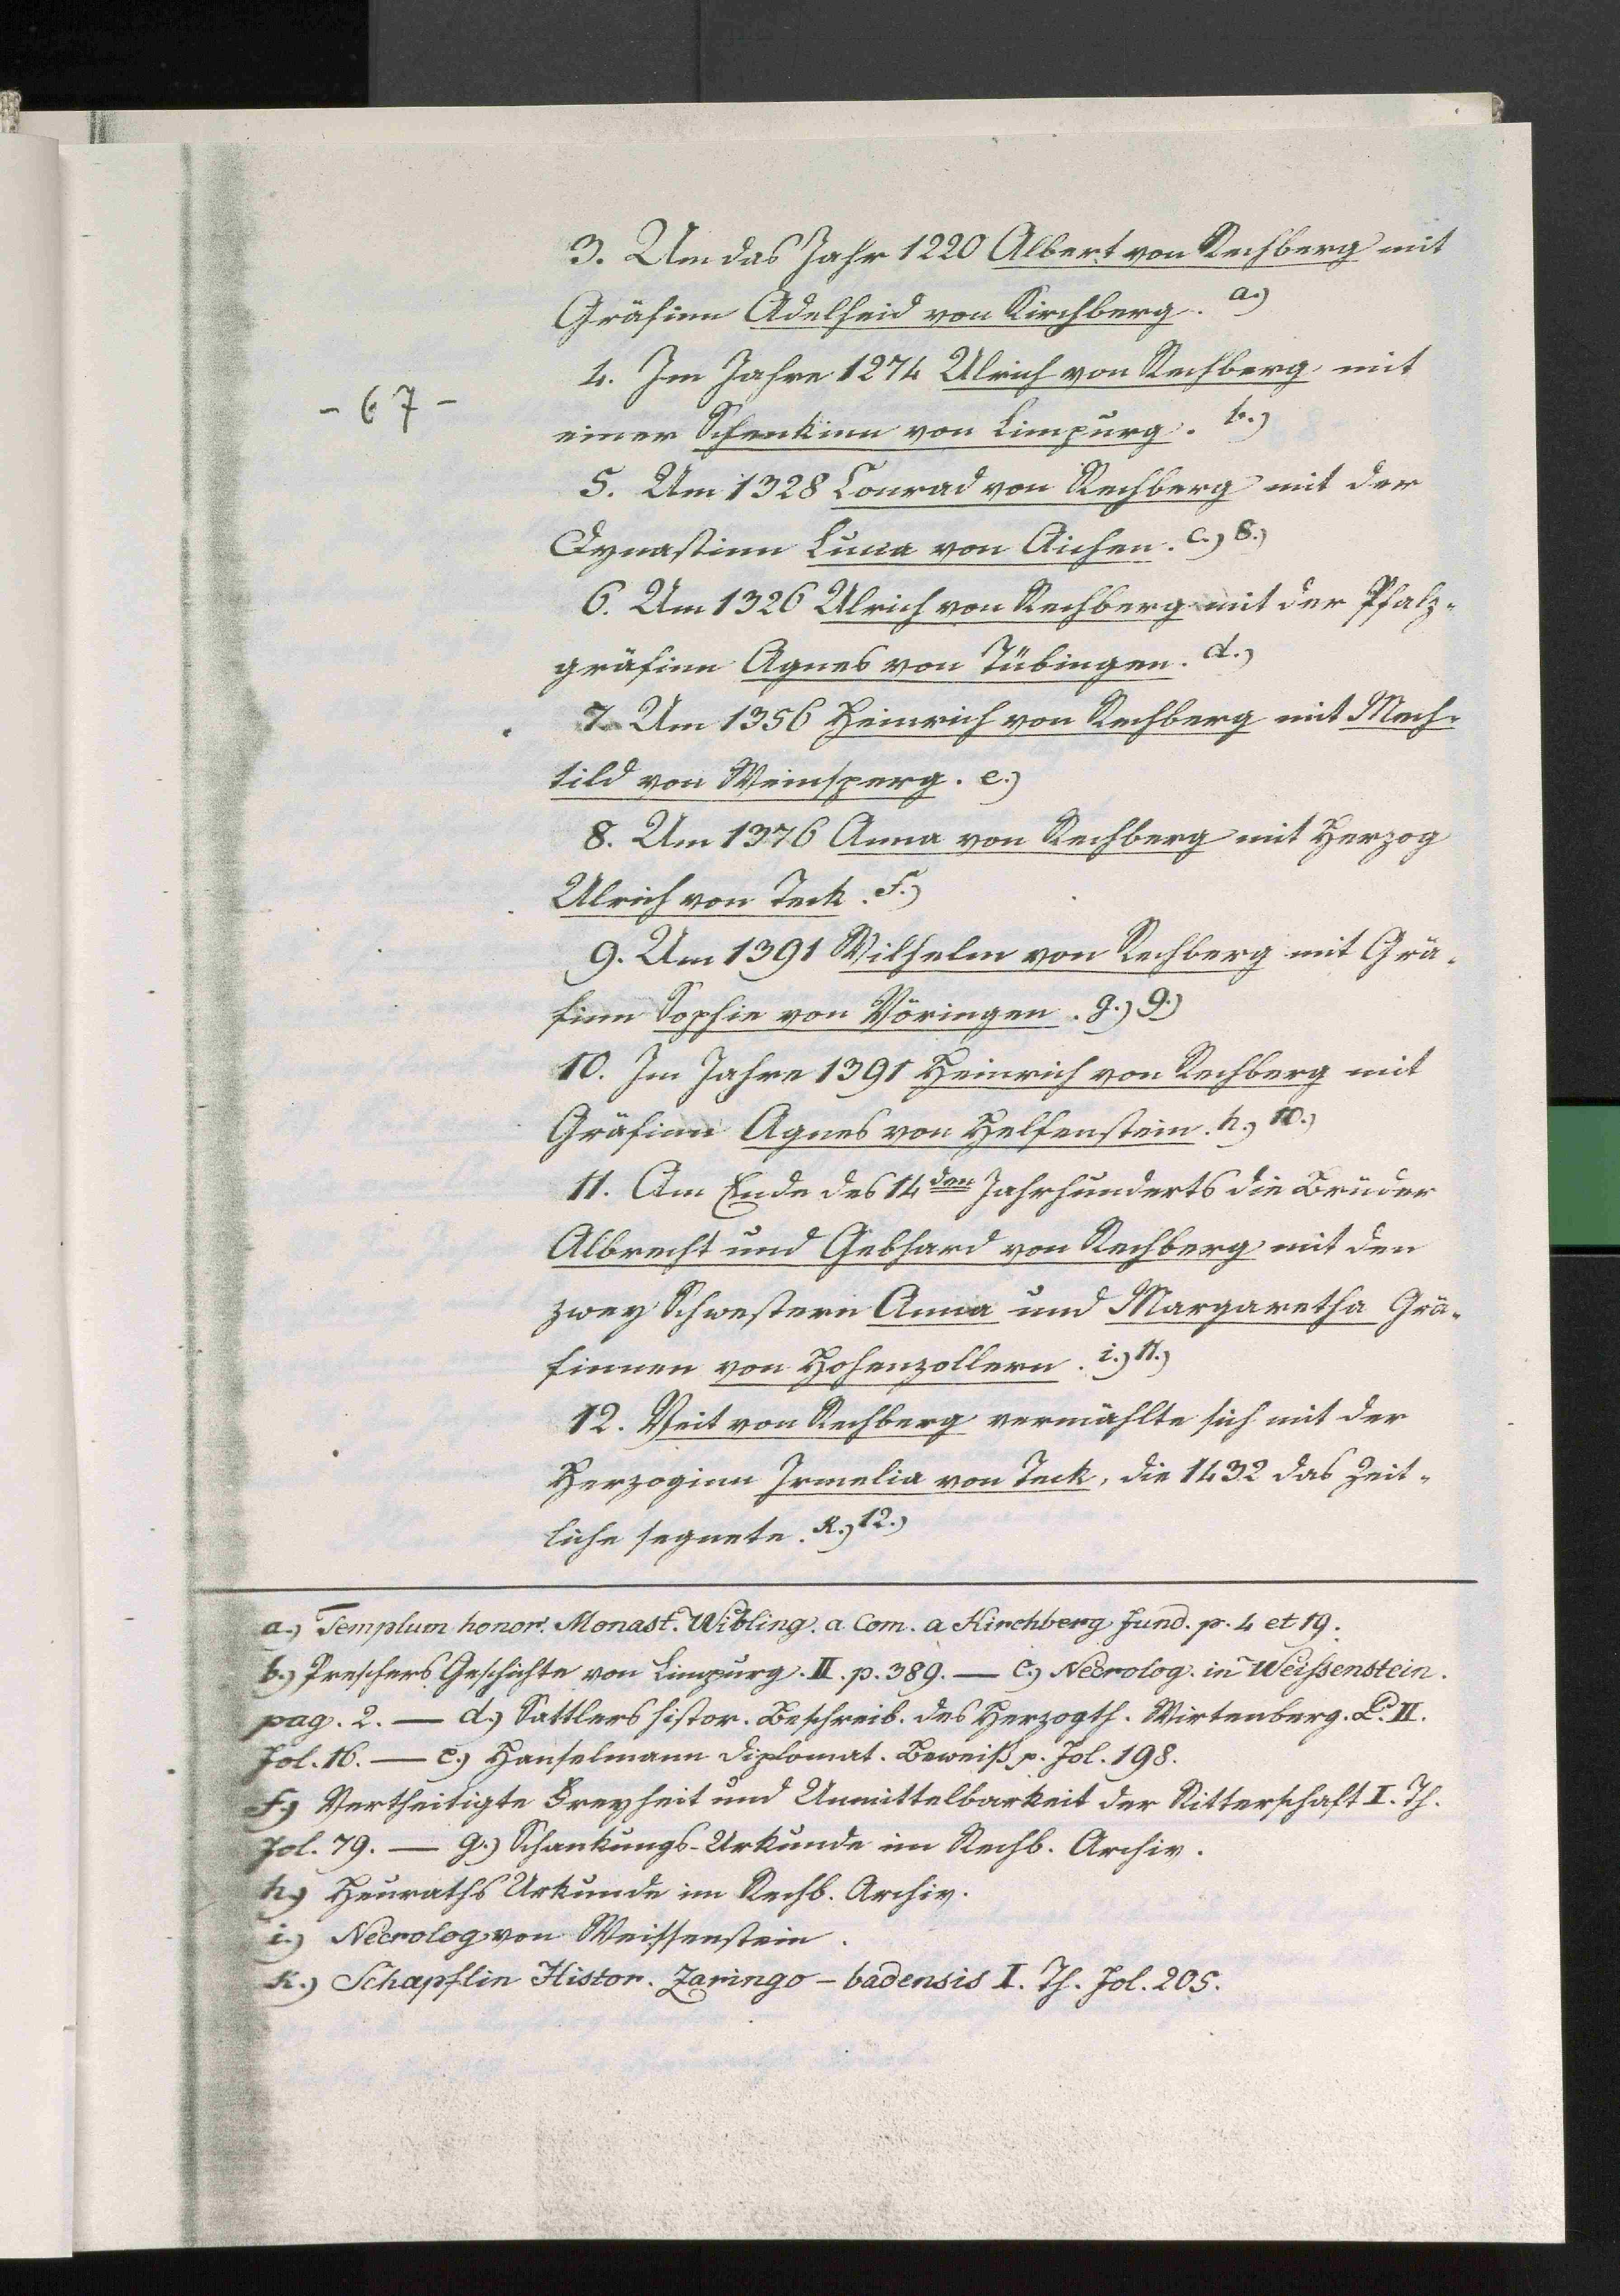 3. Um das Jahr 1220 Albert von Rechberg mit
Gräfinn Adelheid von Kirchberg. a.)
4. Im Jahre 1274 Ulrich von Rechberg mit
- 67 -
einer Schenkinn von Limpurg. b.)
5. Um 1328 Conrad von Rechberg mit der
Dynastinn Lucia von Aichen. c.) 8.)
6. Um 1326 Ulrich von Rechberg mit der Pfalz-
gräfinn Agnes von Tübingen. d.)
7. Um 1356 Heinrich von Rechberg mit Mech-
tild von Weinsperg. e.)
8. Um 1376 Anna von Rechberg mit Herzog
Ulrich von Teck. f.)
9. Um 1391 Wilhelm von Rechberg mit Grä-
finn Sophie von Vöringen. g.) 9.)
10. Im Jahre 1391 Heinrich von Rechberg mit
Gräfinn Agnes von Helfenstein. h.) 10.)
11. Am Ende des 14den Jahrhunderts die Brüder
Albrecht und Gebhard von Rechberg mit den
zwey Schwestern Anna und Margaretha Grä-
finnen von Hohenzollern. i.) 11.)
12. Veit von Rechberg vermählte sich mit der
Herzoginn Irmelia von Teck, die 1432 das Zeit-
liche segnete. K.) 12.)
a.) Templum honor. Monast. Wibling. a Com. a Kirchberg Fund. p. 4 et 19.
b.) Preschers Geschichte von Limpurg. II. p. 389. — c.) Necrolog. in Weißenstein.
pag. 2. — d.) Sattlers histor. Beschreib. des Herzogth. Wirtenberg. P. II.
Fol. 16. — e.) Hanselmann diplomat. Beweiß p. Fol. 198.
f.) Vertheitigte Freyheit und Unmittelbarkeit der Ritterschaft I. Th.
Fol. 79. — g.) Schankungs-Urkunde im Rechb. Archiv.
h.) Heuraths Urkunde im Rechb. Archiv.
i.) Necrolog von Weissenstein.
K.) Schapflin Histor. Zaringo-badensis I. Th. Fol. 205.